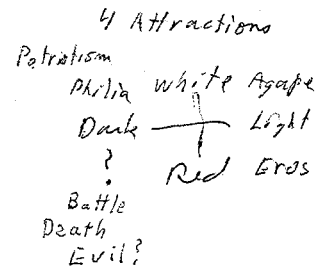 4 Attractions
Patriotism
Philia White Agape
Dark Light
? Red Eros
Battle
Death
Evil?